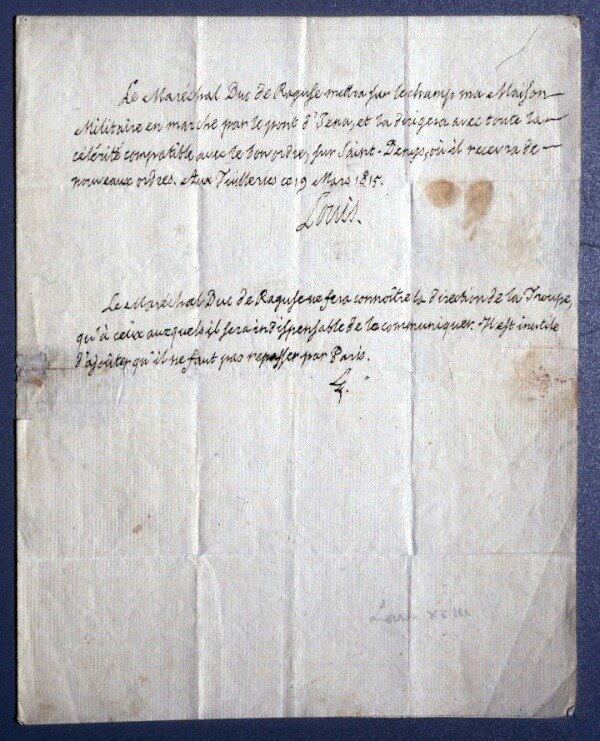 Le Maréchal Duc de Raguse mettra sur le champ ma Maison
Militaire en marche par le pont d'Jena, et la dirigera avec toute la
célérité compatible avec le bon ordre, sur Saint-Denys, où il recevra de
nouveaux ordres. Aux Tuilleries ce 19 Mars 1815.
Louis.
Le Maréchal Duc de Raguse ne fera connoître la direction de la Troupe,
qu'à ceux auxquels il sera indispensable de la communiquer. Il est inutile
d'ajouter qu'il ne faut pas repasser par Paris.
L.
Louis XVIII